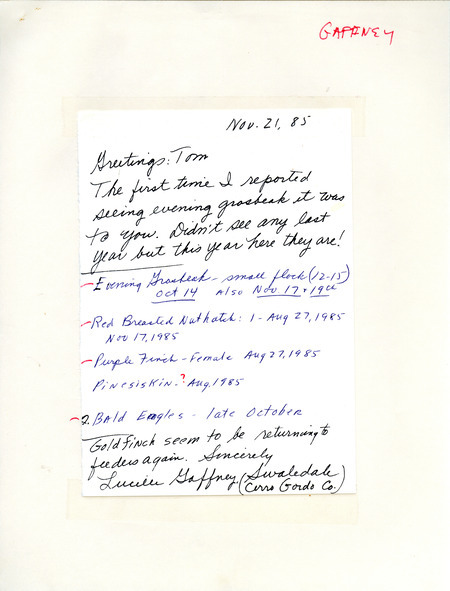 GAFFNEY
Nov. 21, 85
Greetings: Tom
The first time I reported
seeing evening grosbeak it was
to you. Didn't see any last
year but this year here they are!
- Evening Grosbeak - small flock (12-15)
Oct 14 Also Nov. 17 + 19th
- Red Breasted Nuthatch: 1 - Aug 27, 1985
Nov 17, 1985
- Purple Finch - Female Aug 27, 1985
Pinesiskin-? Aug, 1985
- 2 Bald Eagles - late October
Goldfinch seem to be returning to
feeders again. Sincerely
Lucille Gaffney (Swaledale
Cerro Gordo Co.)